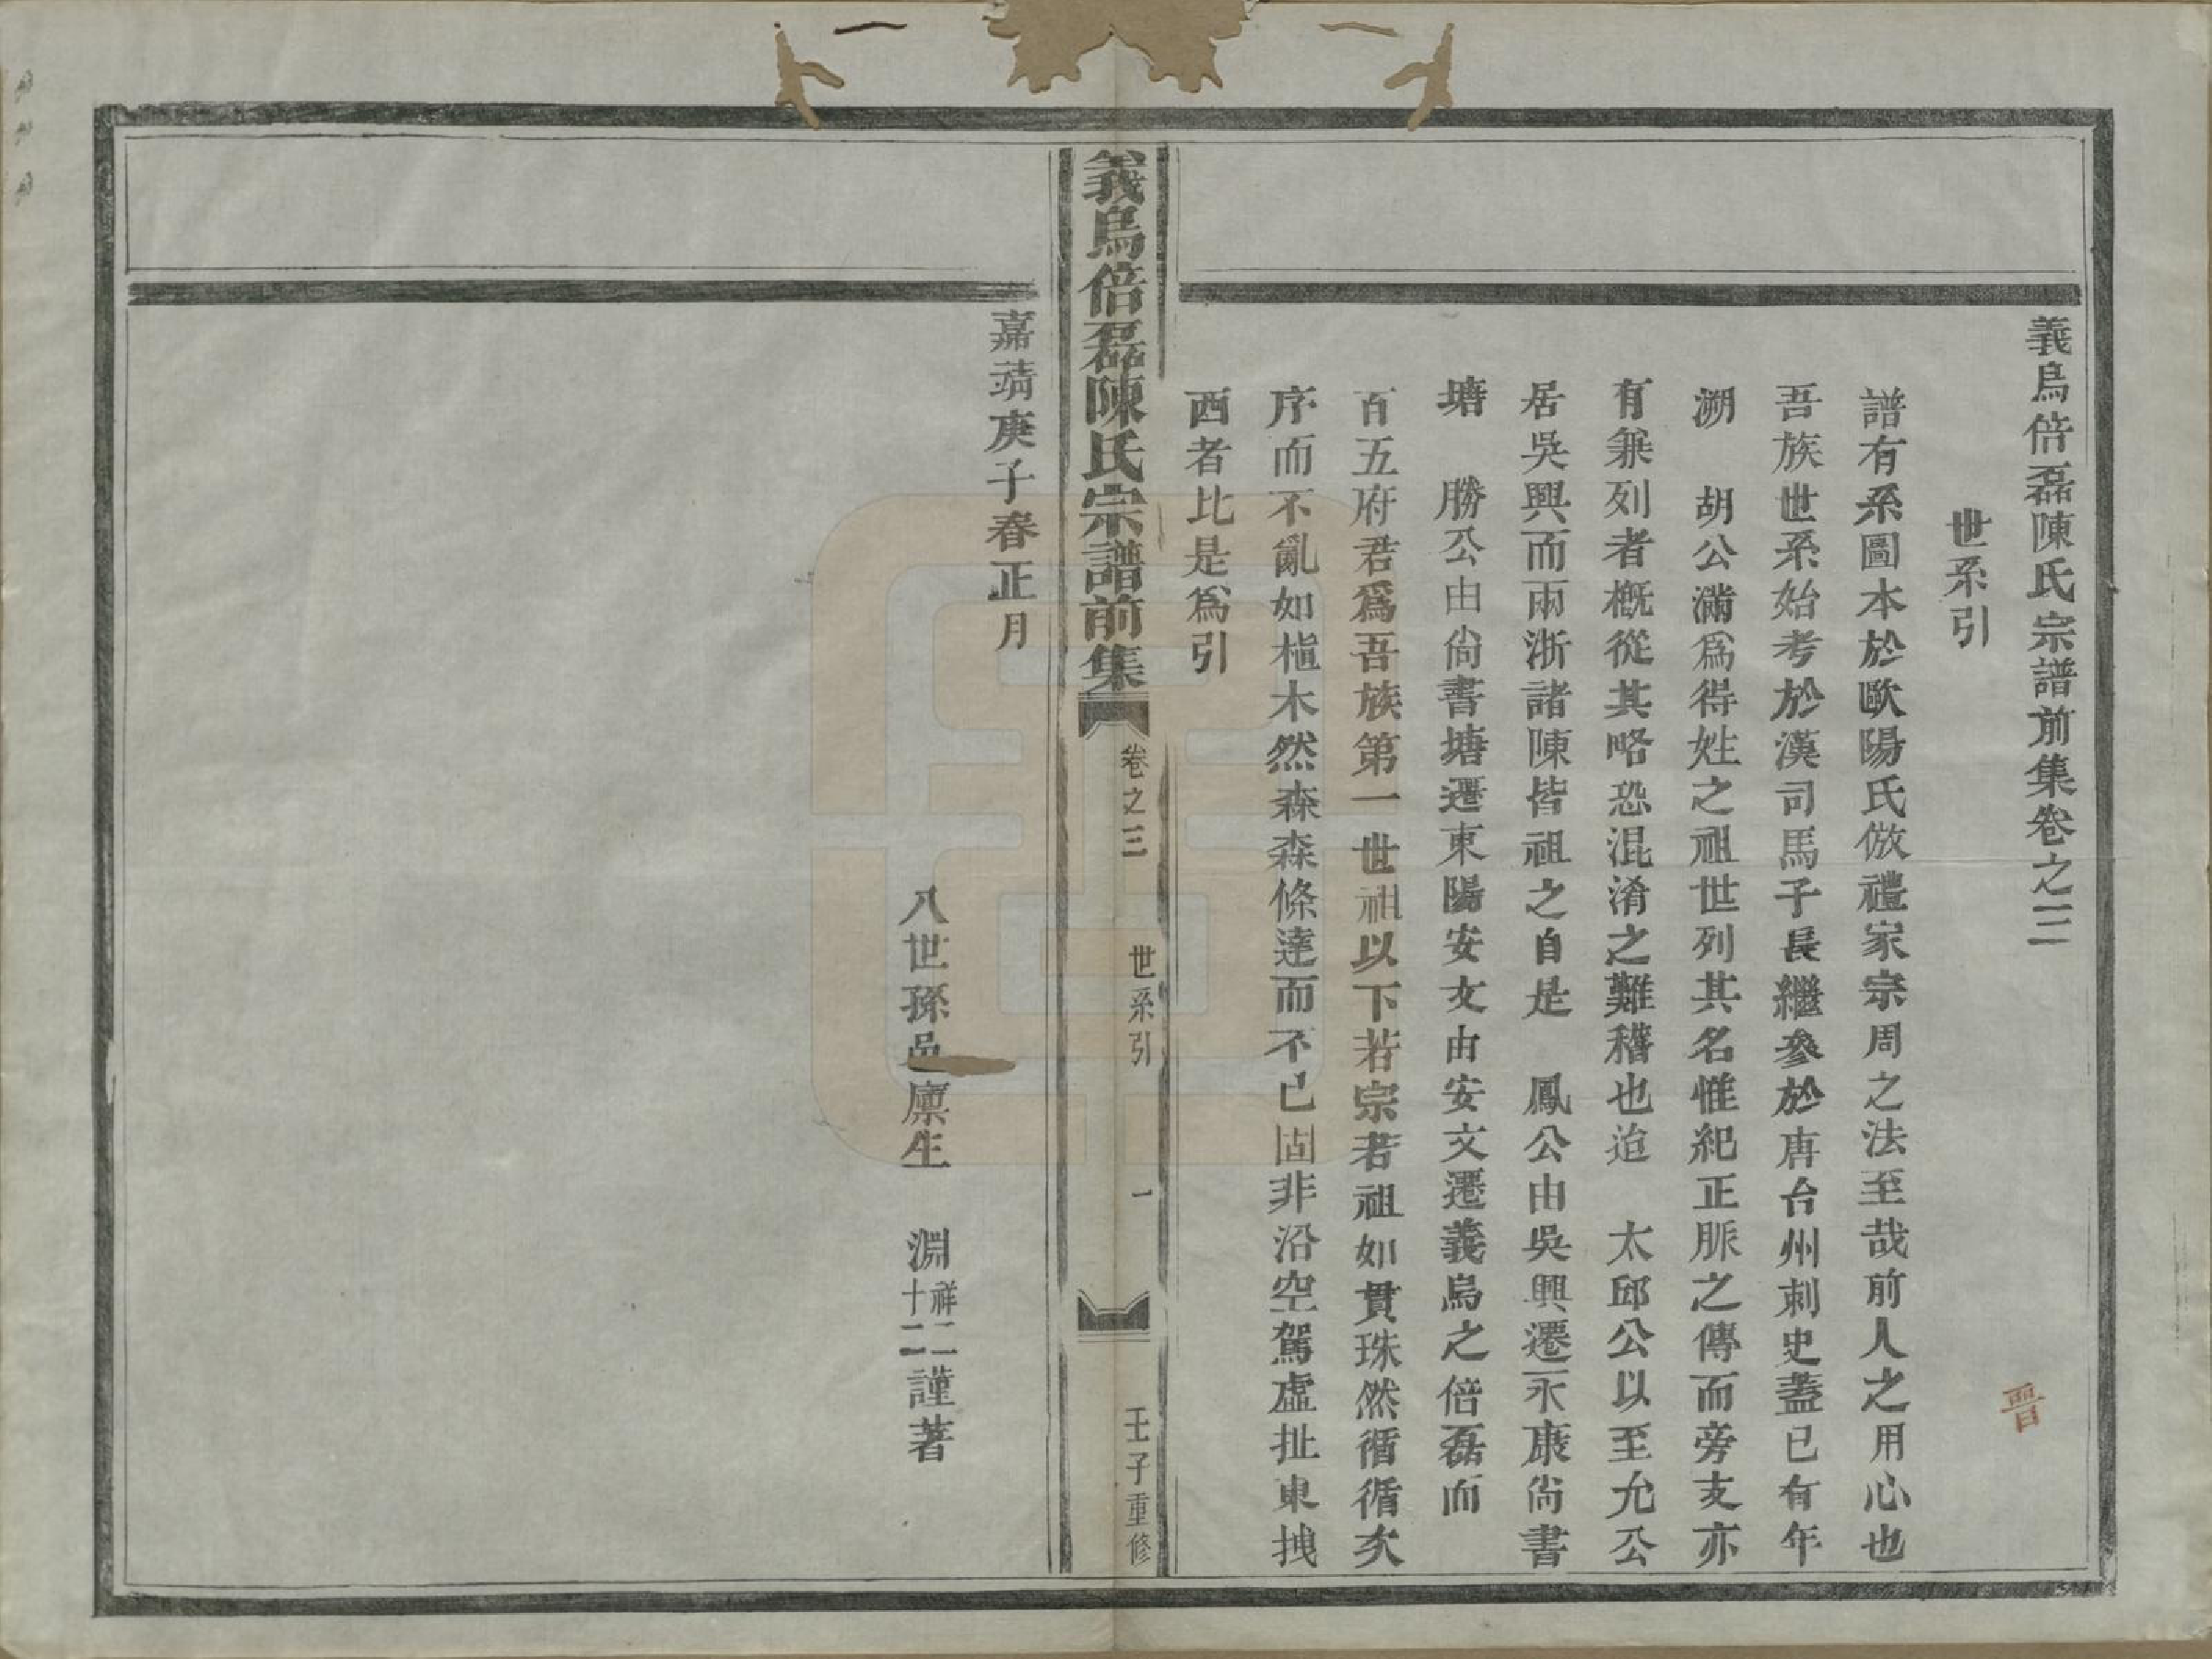 義烏倍磊陳氏宗譜前集卷之三
世系引
譜有系圖本於歐陽氏倣禮家宗周之法至哉前人之用心也
吾族世系始考於漢司馬子長繼參於唐台州刺史蓋已有年
溯　胡公滿爲得姓之祖世列其名惟紀正脈之傳而旁支亦
有兼列者概從其略恐混淆之難稽也迨　太邱公以至允公
居吳興而兩浙諸陳皆祖之自是　鳳公由吳興遷永康尚書
塘　勝公由尙書塘遷東陽安文由安文遷義烏之倍磊而
百五府君爲吾族第一世祖以下若宗若祖如貫珠然循循矣
序而不亂如植木然森森條達而不已固非沿空駕虛扯東拽
西者比是爲引
晋
義烏倍磊陳氏宗譜前集
卷之三
世系引
一
壬子重修
嘉靖庚子春正月
八世孫邑廪生　淵祥二十二謹著